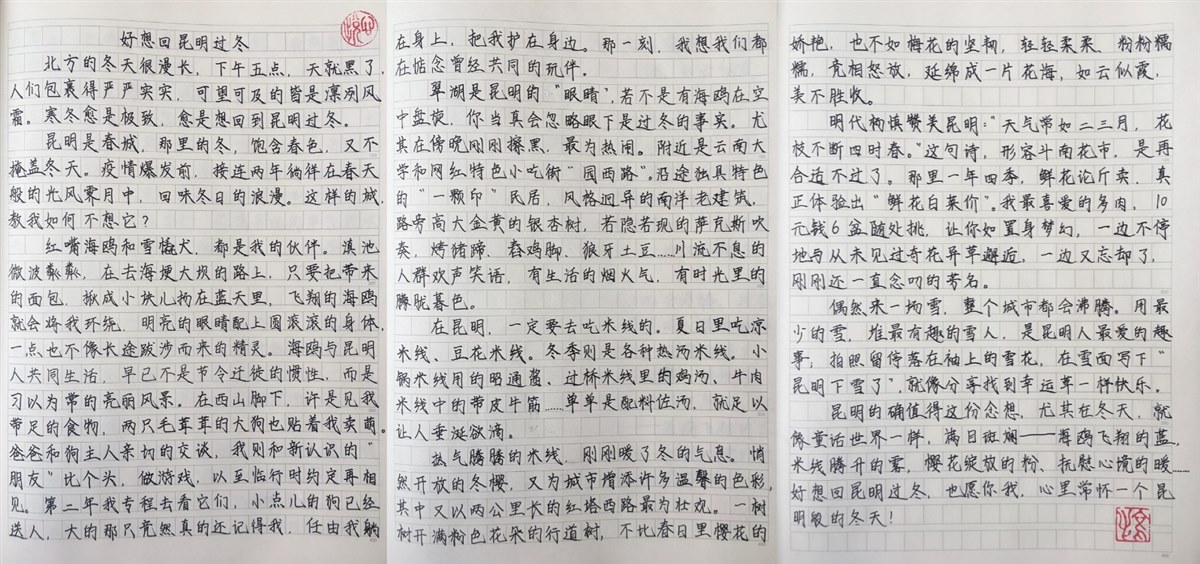 好想回昆明过冬
北方的冬天很漫长，下午五点，天就黑了，
人们包裹得严严实实，可望可及的皆是凛冽风
霜。寒冬愈是极致，愈是想回到昆明过冬。
昆明是春城，那里的冬，饱含春色，又不
掩盖冬天。疫情爆发前，接连两年徜徉在春天
般的光风霁月中，回味冬日的浪漫。这样的城，
教我如何不想它？
红嘴海鸥和雪橇犬，都是我的伙伴。滇池
微波粼粼，在去海埂大坝的路上，只要把带来
的面包，揪成小块儿扬在蓝天里，飞翔的海鸥
就会将我环绕，明亮的眼睛配上圆滚滚的身体，
一点也不像长途跋涉而来的精灵。海鸥与昆明
人共同生活，早已不是节令迁徙的惯性，而是
习以为常的亮丽风景。在西山脚下，许是见我
带足的食物，两只毛茸茸的大狗也贴着我卖萌。
爸爸和狗主人亲切的交谈，我则和新认识的“
朋友”比个头，做游戏，以至临行时约定再相
见。第二年我专程去看它们，小点儿的狗已经
送人，大的那只竟然真的还记得我，任由我躺
在身上，把我护在身边。那一刻，我想我们都
在惦念曾经共同的玩伴。
翠湖是昆明的“眼睛”，若不是有海鸥在空
中盘旋，你当真会忽略眼下是过冬的事实。尤
其在傍晚刚刚擦黑，最为热闹。附近是云南大
学和网红特色小吃街“园西路”。沿途独具特色
的“一颗印”民居，风格迥异的南洋老建筑，
路旁高大金黄的银杏树，若隐若现的萨克斯吹
奏，烤猪蹄、舂鸡脚、狼牙土豆……川流不息的
人群欢声笑语，有生活的烟火气，有时光里的
朦胧暮色。
在昆明，一定要去吃米线的。夏日里吃凉
米线、豆花米线。冬季则是各种热汤米线。小
锅米线用的昭通酱、过桥米线里的鸡汤、牛肉
米线中的带皮牛筋……单单是配料佐汤，就足以
让人垂涎欲滴。
热气腾腾的米线，刚刚暖了冬的气息。悄
然开放的冬樱，又为城市增添许多温馨的色彩，
其中又以两公里长的红塔西路最为壮观。一树
树开满粉色花朵的行道树，不比春日里樱花的
娇艳，也不如梅花的坚韧，轻轻柔柔、粉粉糯
糯，竞相怒放，延绵成一片花海，如云似霞，
美不胜收。
明代杨慎赞美昆明：“天气常如二三月，花
枝不断四时春。”这句诗，形容斗南花市，是再
合适不过了。那里一年四季，鲜花论斤卖，真
正体验出“鲜花白菜价”。我最喜爱的多肉，10
元钱6盆随处挑，让你如置身梦幻，一边不停
地与从未见过奇花异草邂逅，一边又忘却了，
刚刚还一直念叨的芳名。
偶然来一场雪，整个城市都会沸腾。用最
少的雪，堆最有趣的雪人，是昆明人最爱的趣
事；拍照留停落在袖上的雪花，在雪面写下“
昆明下雪了”，就像分享找到幸运草一样快乐。
昆明的确值得这份念想，尤其在冬天，就
像童话世界一样，满目斑斓——海鸥飞翔的蓝，
米线腾升的雾，樱花绽放的粉、抚慰心境的暖……
好想回昆明过冬，也愿你我，心里常怀一个昆
明般的冬天！